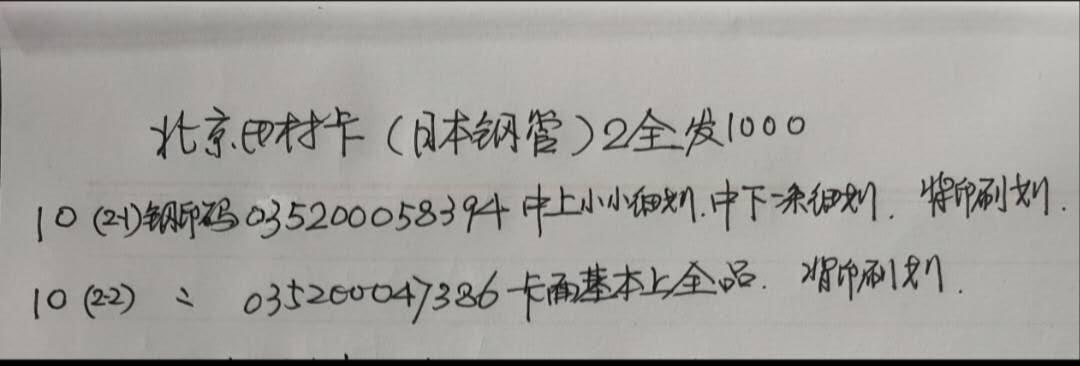 北京田村卡（日本钢管）2全发1000
10（2-1）钢印码035200058394中上小小细划.中下一条细划.背印刷划.
10（2-2）〃035200047386卡面基本上全品.背印刷划.